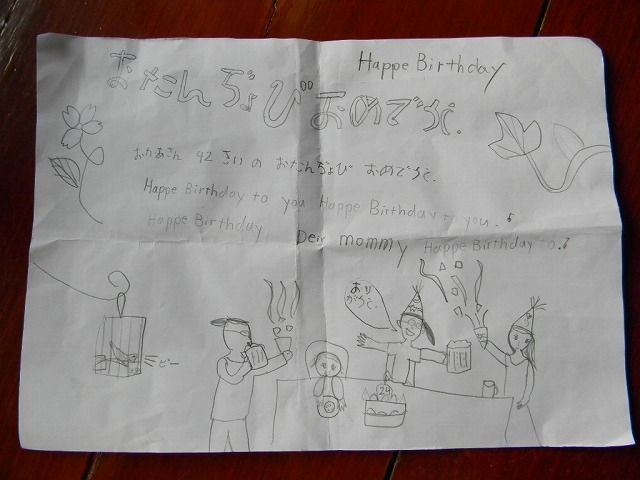 Happe Birthday
おたんぢょびおめでうと.
おかあさん 42 さいの おたんぢょび おめでうと.
Happe Birthday to you Happe Birthday to you.
Happe Birthday Deir mommy Happe Birthday to.
あり
がうと.
ピー
24